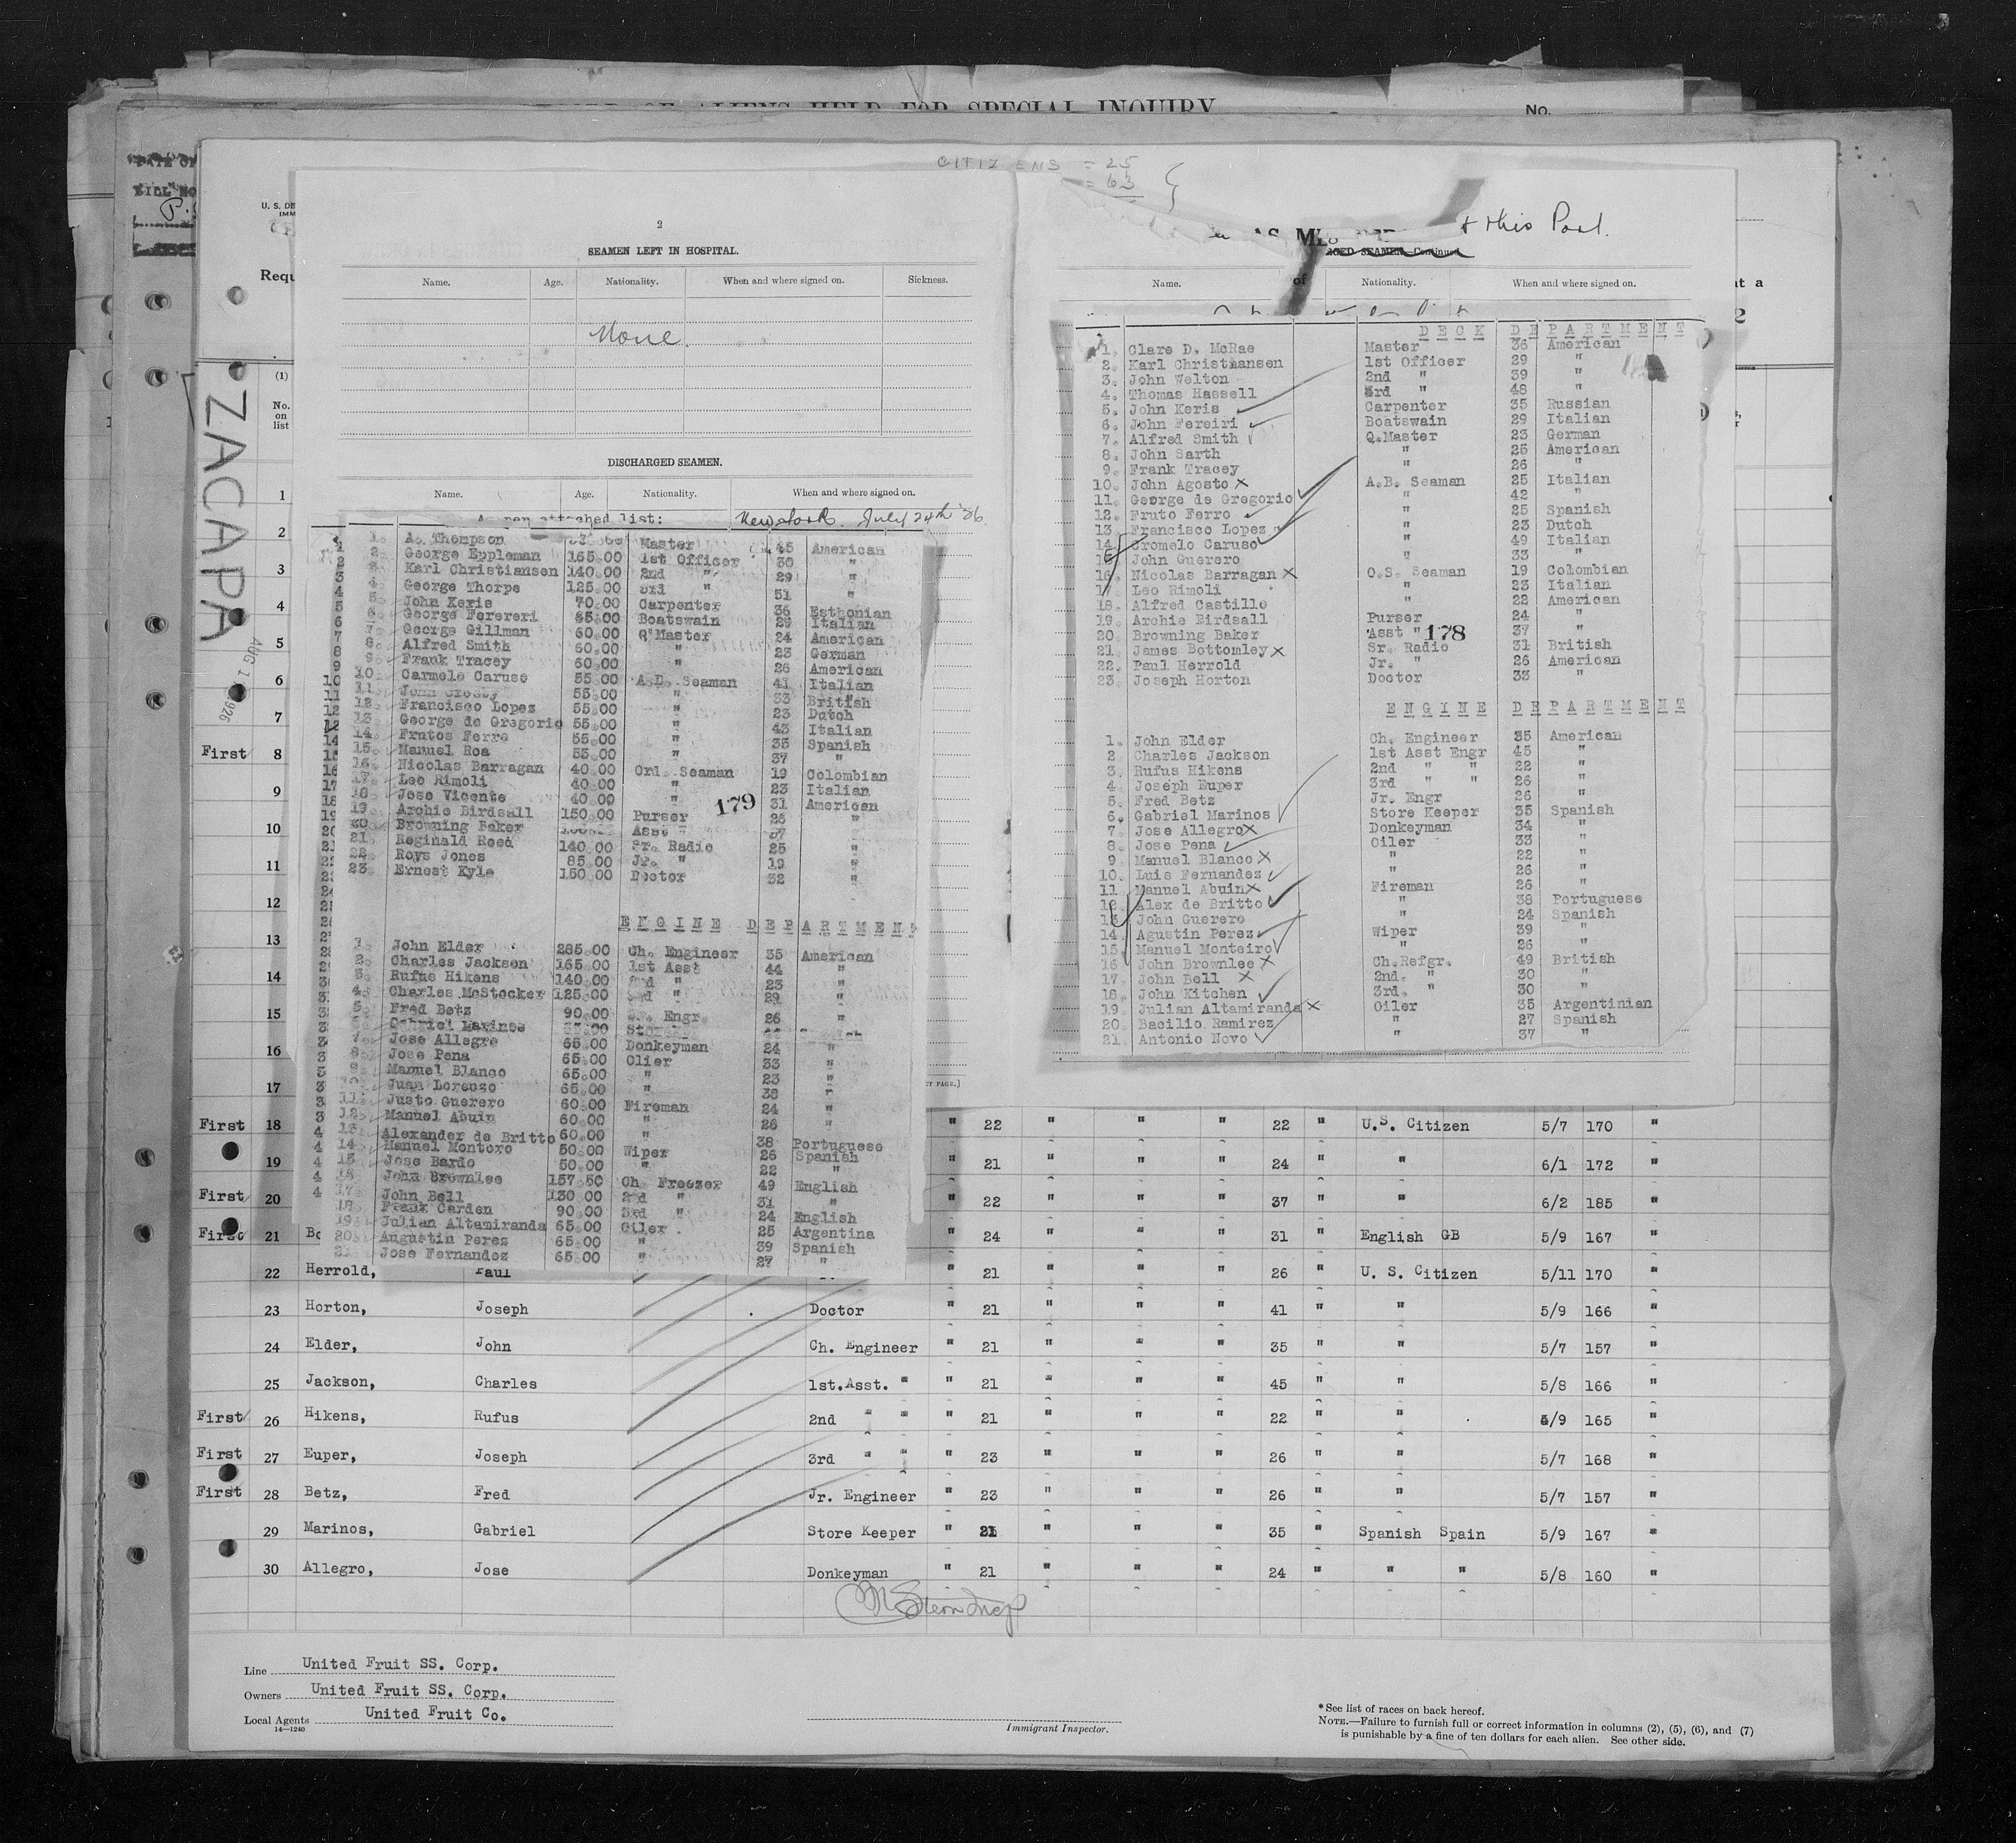 CITIZENS = 25
= 63
No.
U. S. DE
IMM
Requ
ZACAPA
(1)
No.
on
list
2
SEAMEN LEFT IN HOSPITAL.
Name. Age. Nationality. When and where signed on. Sickness.
None.
DISCHARGED SEAMEN.
Name. Age. Nationality. When and where signed on.
As per attached list: New York. July 24th '26.
1. A. Thompson Master 45 American
2. George Eppleman 165.00 1st Officer 30 "
3. Karl Christiansen 140.00 2nd " 29 "
4. George Thorpe 125.00 3rd " 51 "
5. John Keris 70.00 Carpenter 36 Esthonian
6. George Ferereri 65.00 Boatswain 29 Italian
7. George Gillman 60.00 Q'Master 24 American
8. Alfred Smith 60.00 " 23 German
9. Frank Tracey 60.00 " 26 American
10. Carmelo Caruso 55.00 A.B. Seaman 41 Italian
11. John Crosby 55.00 " 33 British
12. Francisco Lopez 55.00 " 23 Dutch
13. George de Gregorio 55.00 " 43 Italian
14. Frutos Ferro 55.00 " 35 Spanish
15. Manuel Roa 55.00 " 37 "
16. Nicolas Barragan 40.00 Ord. Seaman 19 Colombian
17. Leo Rimoli 40.00 " 23 Italian
18. Jose Vicente 40.00 " 31 American
179
19. Archie Birdsall 150.00 Purser 25 "
20. Browning Baker Asst " 37
21. Reginald Reed 140.00 Sr. Radio 25 "
22. Roys Jones 85.00 Jr. " 19 "
23. Ernest Kyle 150.00 Doctor 32 "
ENGINE DEPARTMENT
1. John Elder 285.00 Ch. Engineer 35 American
2. Charles Jackson 165.00 1st Asst 44 "
3. Rufus Hikens 140.00 2nd " 23 "
4. Charles McStocker 125.00 3rd " 29 "
5. Fred Betz 90.00 Jr. Engr. 26 "
6. Gabriel Marinos
7. Jose Allegro 65.00 Donkeyman 24 "
8. Jose Pena 65.00 Oiler 33 "
9. Manuel Blanco 65.00 " 23 "
10. Juan Lorenzo 65.00 " 38 "
11. Justo Guerero 60.00 Fireman 24 "
12. Manuel Abuin 60.00 " 26 "
13. Alexander de Britto 60.00 " 38 Portuguese
14. Manuel Montoro 50.00 Wiper 26 Spanish
15. Jose Bardo 50.00 " 22 "
16. John Brownlee 157.50 Ch Freezer 49 English
17. John Bell 130.00 2nd " 31 "
18. Frank Carden 90.00 3rd " 24 English
19. Julian Altamiranda 65.00 Oiler 25 Argentina
20. Augustin Perez 65.00 " 39 Spanish
21. Jose Fernandez 65.00 " 27 "
& this Port.
Name. of Nationality. When and where signed on.
DECK DEPARTMENT
1. Clare D. McRae Master 36 American
2. Karl Christiansen 1st Officer 29 "
3. John Welton 2nd " 39 "
4. Thomas Hassell 3rd " 48 "
5. John Keris Carpenter 35 Russian
6. John Fereiri Boatswain 29 Italian
7. Alfred Smith Q.Master 23 German
8. John Sarth " 25 American
9. Frank Tracey " 26 "
10. John Agosto A.B. Seaman 25 Italian
11. George de Gregorio " 42 "
12. Fruto Ferro " 25 Spanish
13. Francisco Lopez " 23 Dutch
14. Cromelo Caruso " 49 Italian
15. John Guerero " 33 "
16. Nicolas Barragan O.S. Seaman 19 Colombian
17. Leo Rimoli " 23 Italian
18. Alfred Castillo " 22 American
19. Archie Birdsall Purser 24 "
20. Browning Baker Asst " 178 37 "
21. James Bottomley Sr. Radio 31 British
22. Paul Herrold Jr. " 26 American
23. Joseph Horton Doctor 33 "
ENGINE DEPARTMENT
1. John Elder Ch. Engineer 35 American
2. Charles Jackson 1st Asst Engr 45 "
3. Rufus Hikens 2nd " " 22 "
4. Joseph Euper 3rd " " 26 "
5. Fred Betz Jr. Engr 26 "
6. Gabriel Marinos Store Keeper 35 Spanish
7. Jose Allegro Donkeyman 34 "
8. Jose Pena Oiler 33 "
9. Manuel Blanco " 22 "
10. Luis Fernandez " 26 "
11. Manuel Abuin Fireman 26 "
12. Alex de Britto " 38 Portuguese
13. John Guerero " 24 Spanish
14. Agustin Perez Wiper 39 "
15. Manuel Monteiro " 26 "
16. John Brownlee Ch.Refgr. 49 British
17. John Bell 2nd. " 30 "
18. John Kitchen 3rd. " 30 "
19. Julian Altamiranda Oiler 35 Argentinian
20. Bacilio Ramirez " 27 Spanish
21. Antonio Novo " 37 "
1
2
3
4
5
6
7
First 8
9
10
11
12
13
14
15
16
17
First 18 " 22 " " " 22 " U.S. Citizen 5/7 170 "
19 " 21 " " " 24 " " 6/1 172 "
First 20 " 22 " " " 37 " " 6/2 185 "
First 21 Bo " 24 " " " 31 " English GB 5/9 167 "
22 Herrold, Paul " 21 " " " 26 " U. S. Citizen 5/11 170 "
23 Horton, Joseph Doctor " 21 " " " 41 " " 5/9 166 "
24 Elder, John Ch. Engineer " 21 " " " 35 " " 5/7 157 "
25 Jackson, Charles 1st.Asst. " " 21 " " " 45 " " 5/8 166 "
First 26 Hikens, Rufus 2nd " " " 21 " " " 22 " " 5/9 165 "
First 27 Euper, Joseph 3rd " " " 23 " " " 26 " " 5/7 168 "
First 28 Betz, Fred Jr. Engineer " 23 " " " 26 " " 5/7 157 "
29 Marinos, Gabriel Store Keeper " 21 " " " 35 " Spanish Spain 5/9 167 "
30 Allegro, Jose Donkeyman " 21 " " " 24 " " " 5/8 160 "
Line United Fruit SS. Corp.
Owners United Fruit SS. Corp.
Local Agents United Fruit Co.
14—1240
Immigrant Inspector.
*See list of races on back hereof.
NOTE.—Failure to furnish full or correct information in columns (2), (5), (6), and (7)
is punishable by a fine of ten dollars for each alien. See other side.